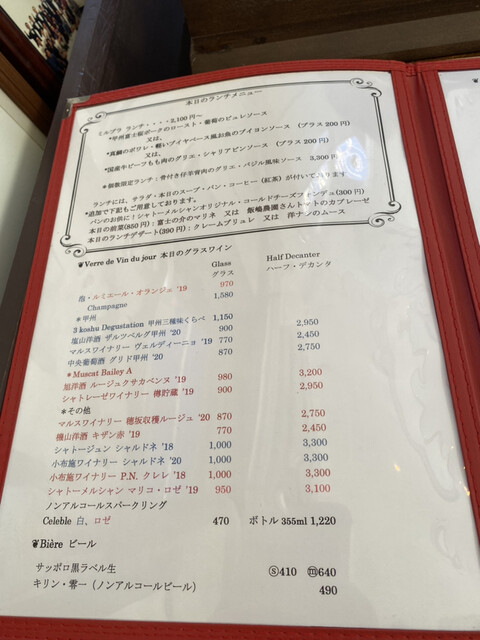 本日のランチメニュー
ミルプラ ランチ・・・・2,100円～
*甲州富士桜ポークのロースト・葡萄のピュレソース
又は、
*真鯛のポワレ・軽いブイヤベース風お魚のブイヨンソース (プラス200円)
又は、
*国産牛ビーフもも肉のグリエ・シャリアピンソース (プラス200円)
*個数限定ランチ：骨付き仔羊背肉のグリエ・バジル風味ソース 3,300円
ランチには、サラダ・本日のスープ・パン・コーヒー(紅茶)が付いております
*追加で下記もご用意しております。
パンのお供に！シャトーメルシャンオリジナル・コールドチーズフォンデュ(300円)
本日の前菜(850円)：富士の介のマリネ 又は 飯嶋農園さんトマトのカプレーゼ
本日のランチデザート(390円)：クレームブリュレ 又は 洋ナシのムース
❦Verre de Vin du jour 本日のグラスワイン
Glass Half Decanter
グラス ハーフ・デカンタ
泡・ルミエール・オランジュ '19 970
Champagne 1,580
*甲州
3 koshu Degustation 甲州三種味くらべ 1,150
塩山洋酒 ザルツベルグ甲州 '20 900 2,950
マルスワイナリー ヴェルディーニョ '19 770 2,450
中央葡萄酒 グリド甲州 '20 870 2,750
*Muscat Bailey A
旭洋酒 ルージュクサカベンヌ '19 980 3,200
シャトレーゼワイナリー 樽貯蔵 '19 900 2,950
*その他
マルスワイナリー 穂坂収穫ルージュ '20 870 2,750
機山洋酒 キザン赤 '19 770 2,450
シャトージュン シャルドネ '18 1,000 3,300
小布施ワイナリー シャルドネ '20 1,000 3,300
小布施ワイナリー P.N. クレレ '18 1,000 3,300
シャトーメルシャン マリコ・ロゼ '19 950 3,100
ノンアルコールスパークリング
Celeble 白、ロゼ 470 ボトル 355ml 1,220
❦Bière ビール
サッポロ黒ラベル生 ⓢ410 ⓜ640
キリン・零一（ノンアルコールビール） 490